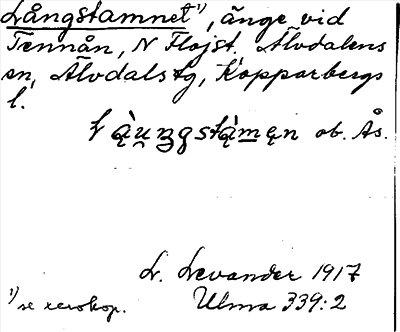 Långstamnet¹⁾, änge vid
Tennån, N Flojst. Älvdalens
sn, Älvdals tg, Kopparbergs
l.
ob. Ås.
L. Levander 1917
¹⁾ se xerokop. Ulma 339:2